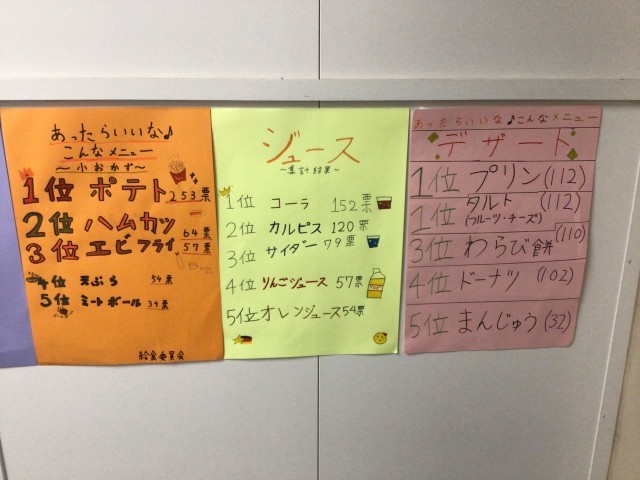 あったらいいな♪
こんなメニュー
～小おかず～
1位 ポテト 253票
2位 ハムカツ 64票
3位 エビフライ 57票
4位 天ぷら 54票
5位 ミートボール 39票
給食委員会
ジュース
～集計結果～
1位 コーラ 152票
2位 カルピス 120票
3位 サイダー 79票
4位 りんごジュース 57票
5位 オレンジュース 54票
あったらいいな♪こんなメニュー
デザート
1位 プリン(112)
1位 タルト (112)
(フルーツ・チーズ)
3位 わらび餅 (110)
4位 ドーナツ (102)
5位 まんじゅう(32)